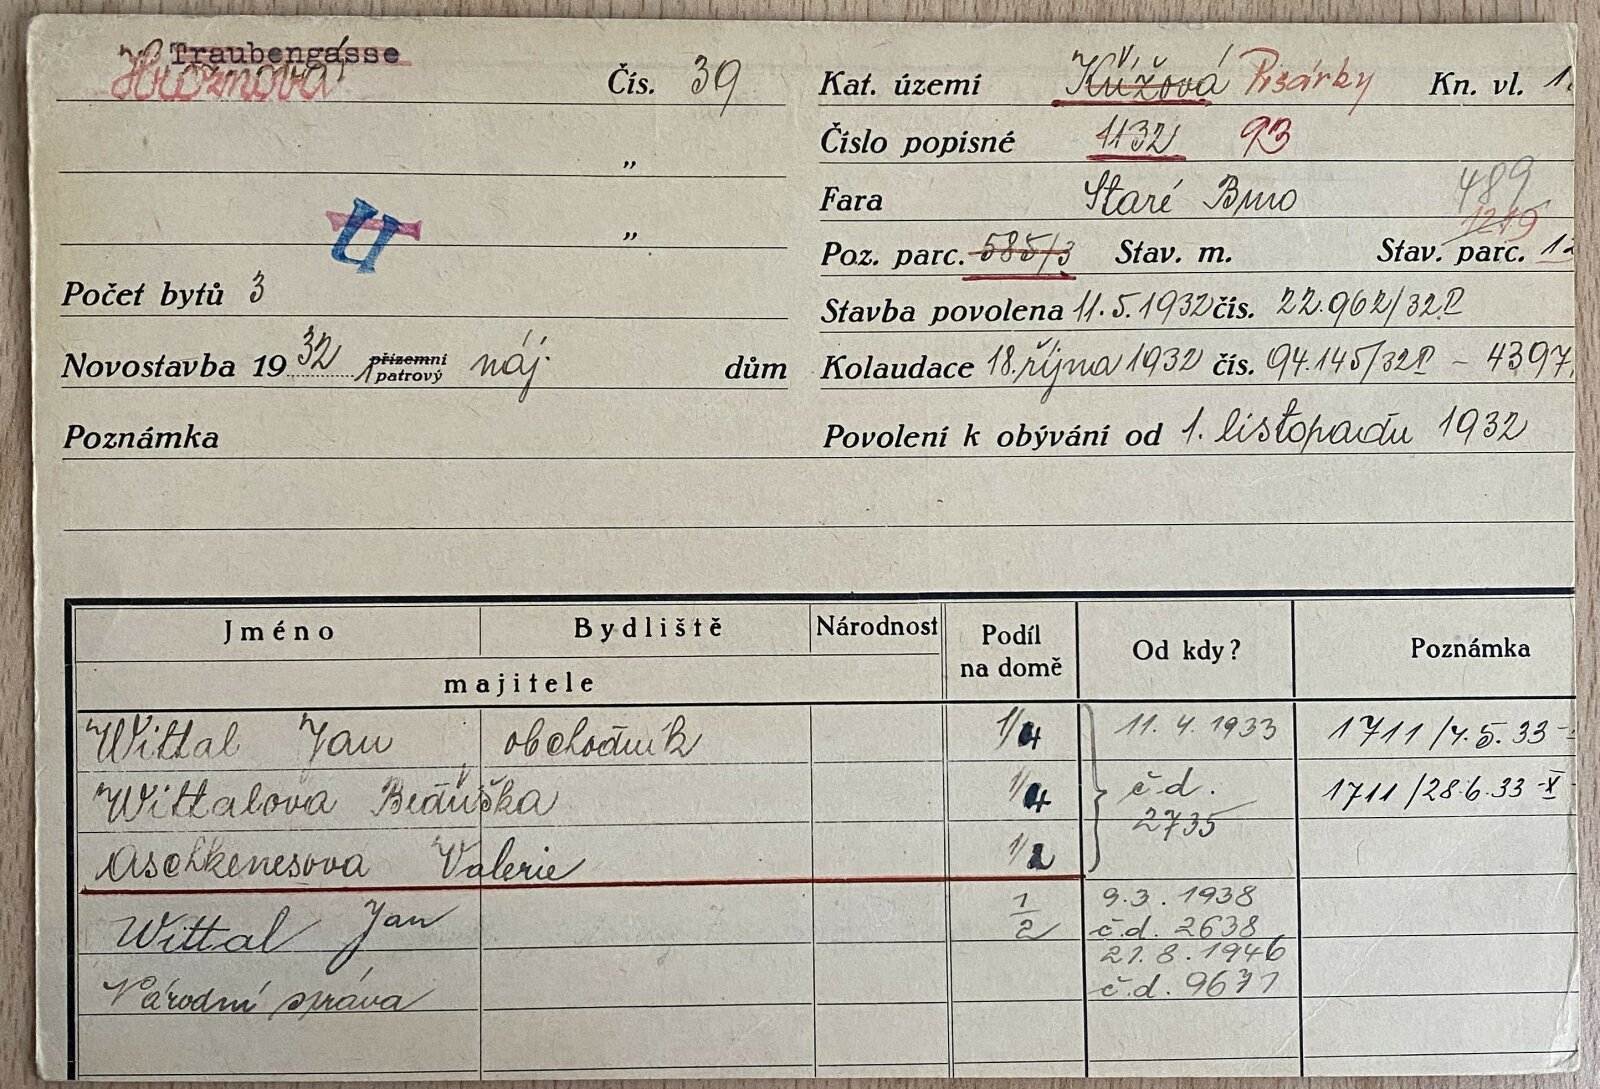 Traubengasse
Hroznová Čís. 39
„
„
U
Počet bytů 3
Novostavba 1932 přízemní 1patrový náj. dům
Poznámka
Kat. území Křížová Pisárky Kn. vl. 1
Číslo popisné 1132 93
Fara Staré Brno 489
1219
Poz. parc. 585/3 Stav. m. Stav. parc. 12
Stavba povolena 11.5.1932 čís. 22.962/32
Kolaudace 18. října 1932 čís. 94.145/32 – 4397
Povolení k obývání od 1. listopadu 1932
Jméno Bydliště Národnost Podíl na domě Od kdy? Poznámka
majitele
Wittal Jan obchodník 1/4 11.4.1933 1711/7.5.33
Wittalova Beduška 1/4 č.d. 2735 1711/28.6.33 X
Aschkenesova Valerie 1/2
Wittal Jan 1/2 9.3.1938
č.d. 2638
Národní správa 21.8.1946
č.d. 9671